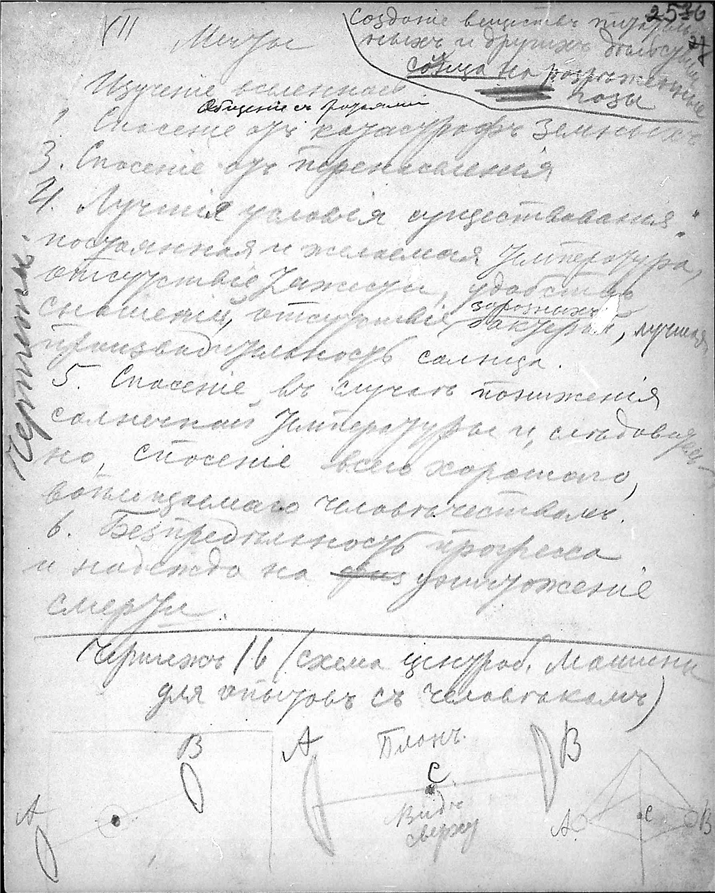 VII
2536
Мечты
Созданіе веществъ питатель-
ныхъ и другихъ
солнца на разряженные
газы
Изученіе вселенной
Общеніе съ
1. Спасеніе отъ катастрофъ земныхъ
3. Спасеніе отъ перенаселенія
4. Лучшія условія существованія:
постоянная и желаемая температура,
отсутствіе тяжести, удобства
сношеній, отсутствіе заразныхъ бактерій, лучшая
производительность солнца.
5. Спасеніе, въ случаѣ пониженія
солнечной температуры и, слѣдователь-
но, спасеніе всего хорошаго,
воплощаемаго человѣчествомъ.
6. Безпредѣльность прогресса
и надежда на уничтоженіе
смерти.
Чертежи.
Чертежъ 16 (схема центроб. машины
для опытовъ съ человѣкомъ)
A B
A Планъ. B
C
Видъ
сверху
A C B